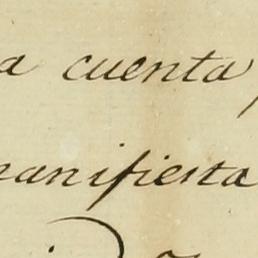 a cuenta,
manifiesta